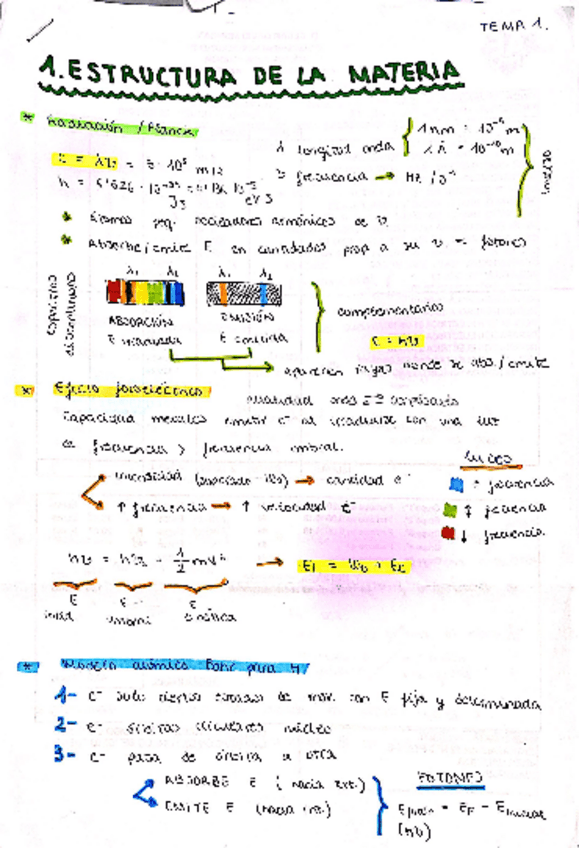 TEMA 1.
1. ESTRUCTURA DE LA MATERIA
* Radiación / Planck
c = λν = 3·10⁸ m/s
λ longitud onda
1 nm = 10⁻⁹ m
1 Å = 10⁻¹⁰ m
h = 6'626·10⁻³⁴ J s
ν frecuencia → Hz / s⁻¹
* Átomos peq. osciladores armónicos de ν
* Absorbe/emite E en cantidades prop a su ν = fotones
espectros discontinuos
λ₁ λ₂ λ₁ λ₂
ABSORCIÓN EMISIÓN
E irradiada E emitida
complementarios
E = hν
aparecen rayas donde se abs./emite
* Efecto fotoeléctrico
Capacidad metales emitir e⁻ al irradiarse con una luz
de frecuencia > frecuencia umbral.
intensidad → cantidad e⁻
↑ frecuencia → ↑ velocidad e⁻
LUCES
↑ frecuencia
↕ frecuencia
↓ frecuencia
→ Ei = W₀ + Ec
E E E
umbral cinética
* Modelo atómico Bohr para H
1- e⁻ solo ciertos estados de mov. con E fija y determinada
2- e⁻ órbitas circulares núcleo
3- e⁻ pasa de órbita a otra
ABSORBE E (hacia ext.)
EMITE E (hacia int.)
FOTONES
= EF - Einicial
(hν)